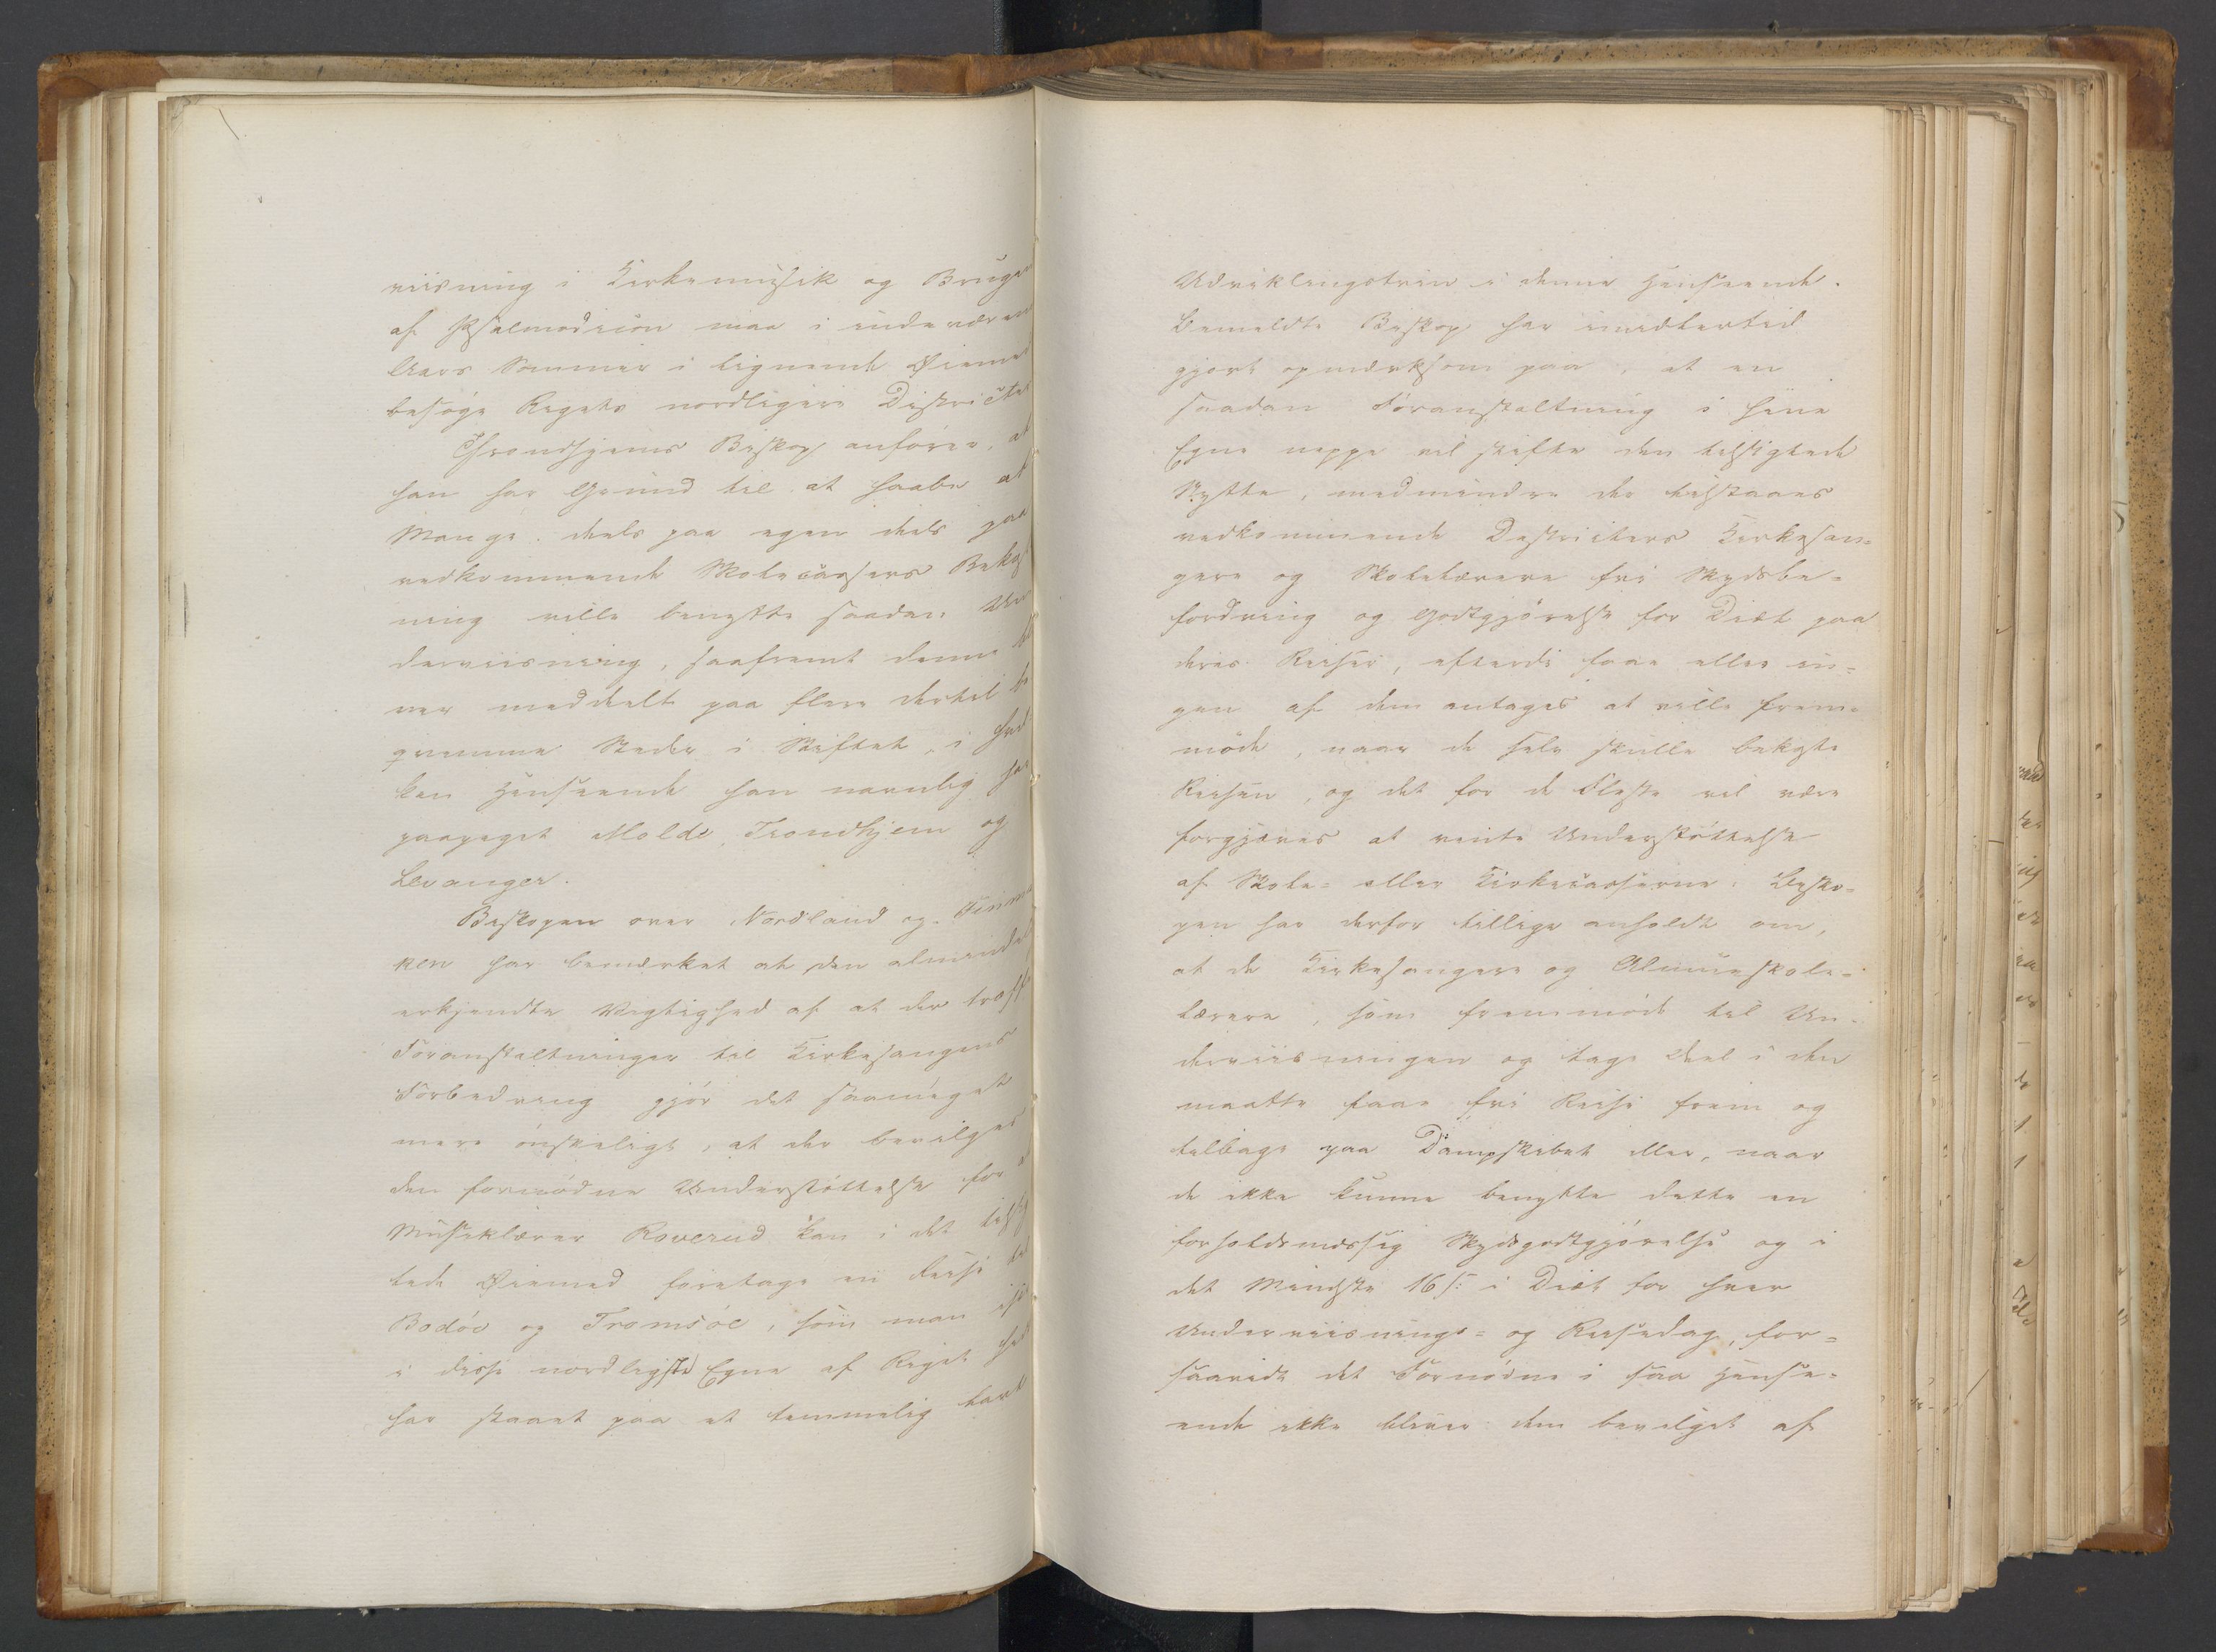 viisning i Kirkemusik og Brugen
af Psalmodicon maa i indeværen
Aars Sommer i lignende Øiemed
besøge Rigets nordligere Districter
Throndhjems Biskop anfører, at
han har Grund til at haabe at
Mange, deels paa egen deels paa
vedkommende Skolecassers Bekost
ning ville benytte saadan Un
derviisning, saafremt denne bl
ver meddeelt paa flere dertil be
qvemme Steder i Stiftet, i hvil
ken Henseende han navnlig har
paapeget Molde, Trondhjem og
Levanger.
Biskopen over Nordland og Finmar
ken har bemærket at den almindel
erkjendte Vigtighed af at der træffes
Foranstaltninger til Kirkesangens
Forbedring gjør det saameget
mere ønskeligt, at der bevilges
den fornødne Understøttelse for at
Musiklærer Roverud kan i det tilsig
tede Øiemed foretage en Reise til
Bodøe og Tromsøe, som man
i disse nordligste Egne af Riget
har staaet paa et temmelig lavt
Udviklingstrin i denne Henseende.
Bemeldte Biskop har imidlertid
gjort opmærksom paa, at en
saadan Foranstaltning i hine
Egne neppe vil stifte den tilsigtede
Nytte, medmindre der tilstaaes
vedkommende Districters Kirkesan=
gere og Skolelærere fri Skydsbe=
fordring og Godtgjørelse for Diæt paa
deres Reiser, efterdi faae eller in=
gen af dem antages at ville frem=
møde, naar de selv skulle bekoste
Reisen, og det for de Fleste vil være
forgjæves at vente Understøttelse
af Skole= eller Kirkecasserne. Bisko=
pen har derfor tillige anholdt om,
at de Kirkesangere og Almueskole=
lærere, som fremmøde til Un=
derviisningen og tage Deel i den
maatte faae fri Reise frem og
tilbage paa Dampskibet eller, naar
de ikke kunne benytte dette en
forholdsmæssig Skydsgodtgjørelse og i
det Mindste 16 s: i Diæt for hver
Underviisnings= og Reisedag, for=
saavidt det Fornødne i saa Hense=
ende ikke bliver dem bevilget af